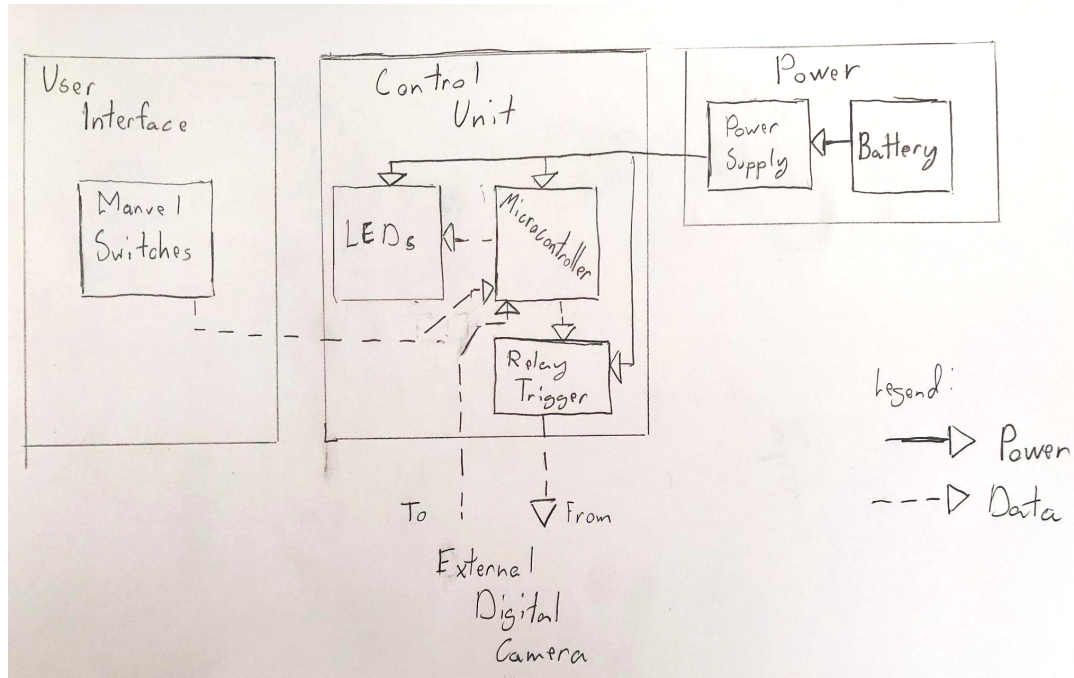 User
Interface
Manvel
Switches
Control
Unit
LEDs
Microcontroller
Relay
Trigger
Power
Power
Supply
Battery
Legend:
Power
Data
To
From
External
Digital
Camera